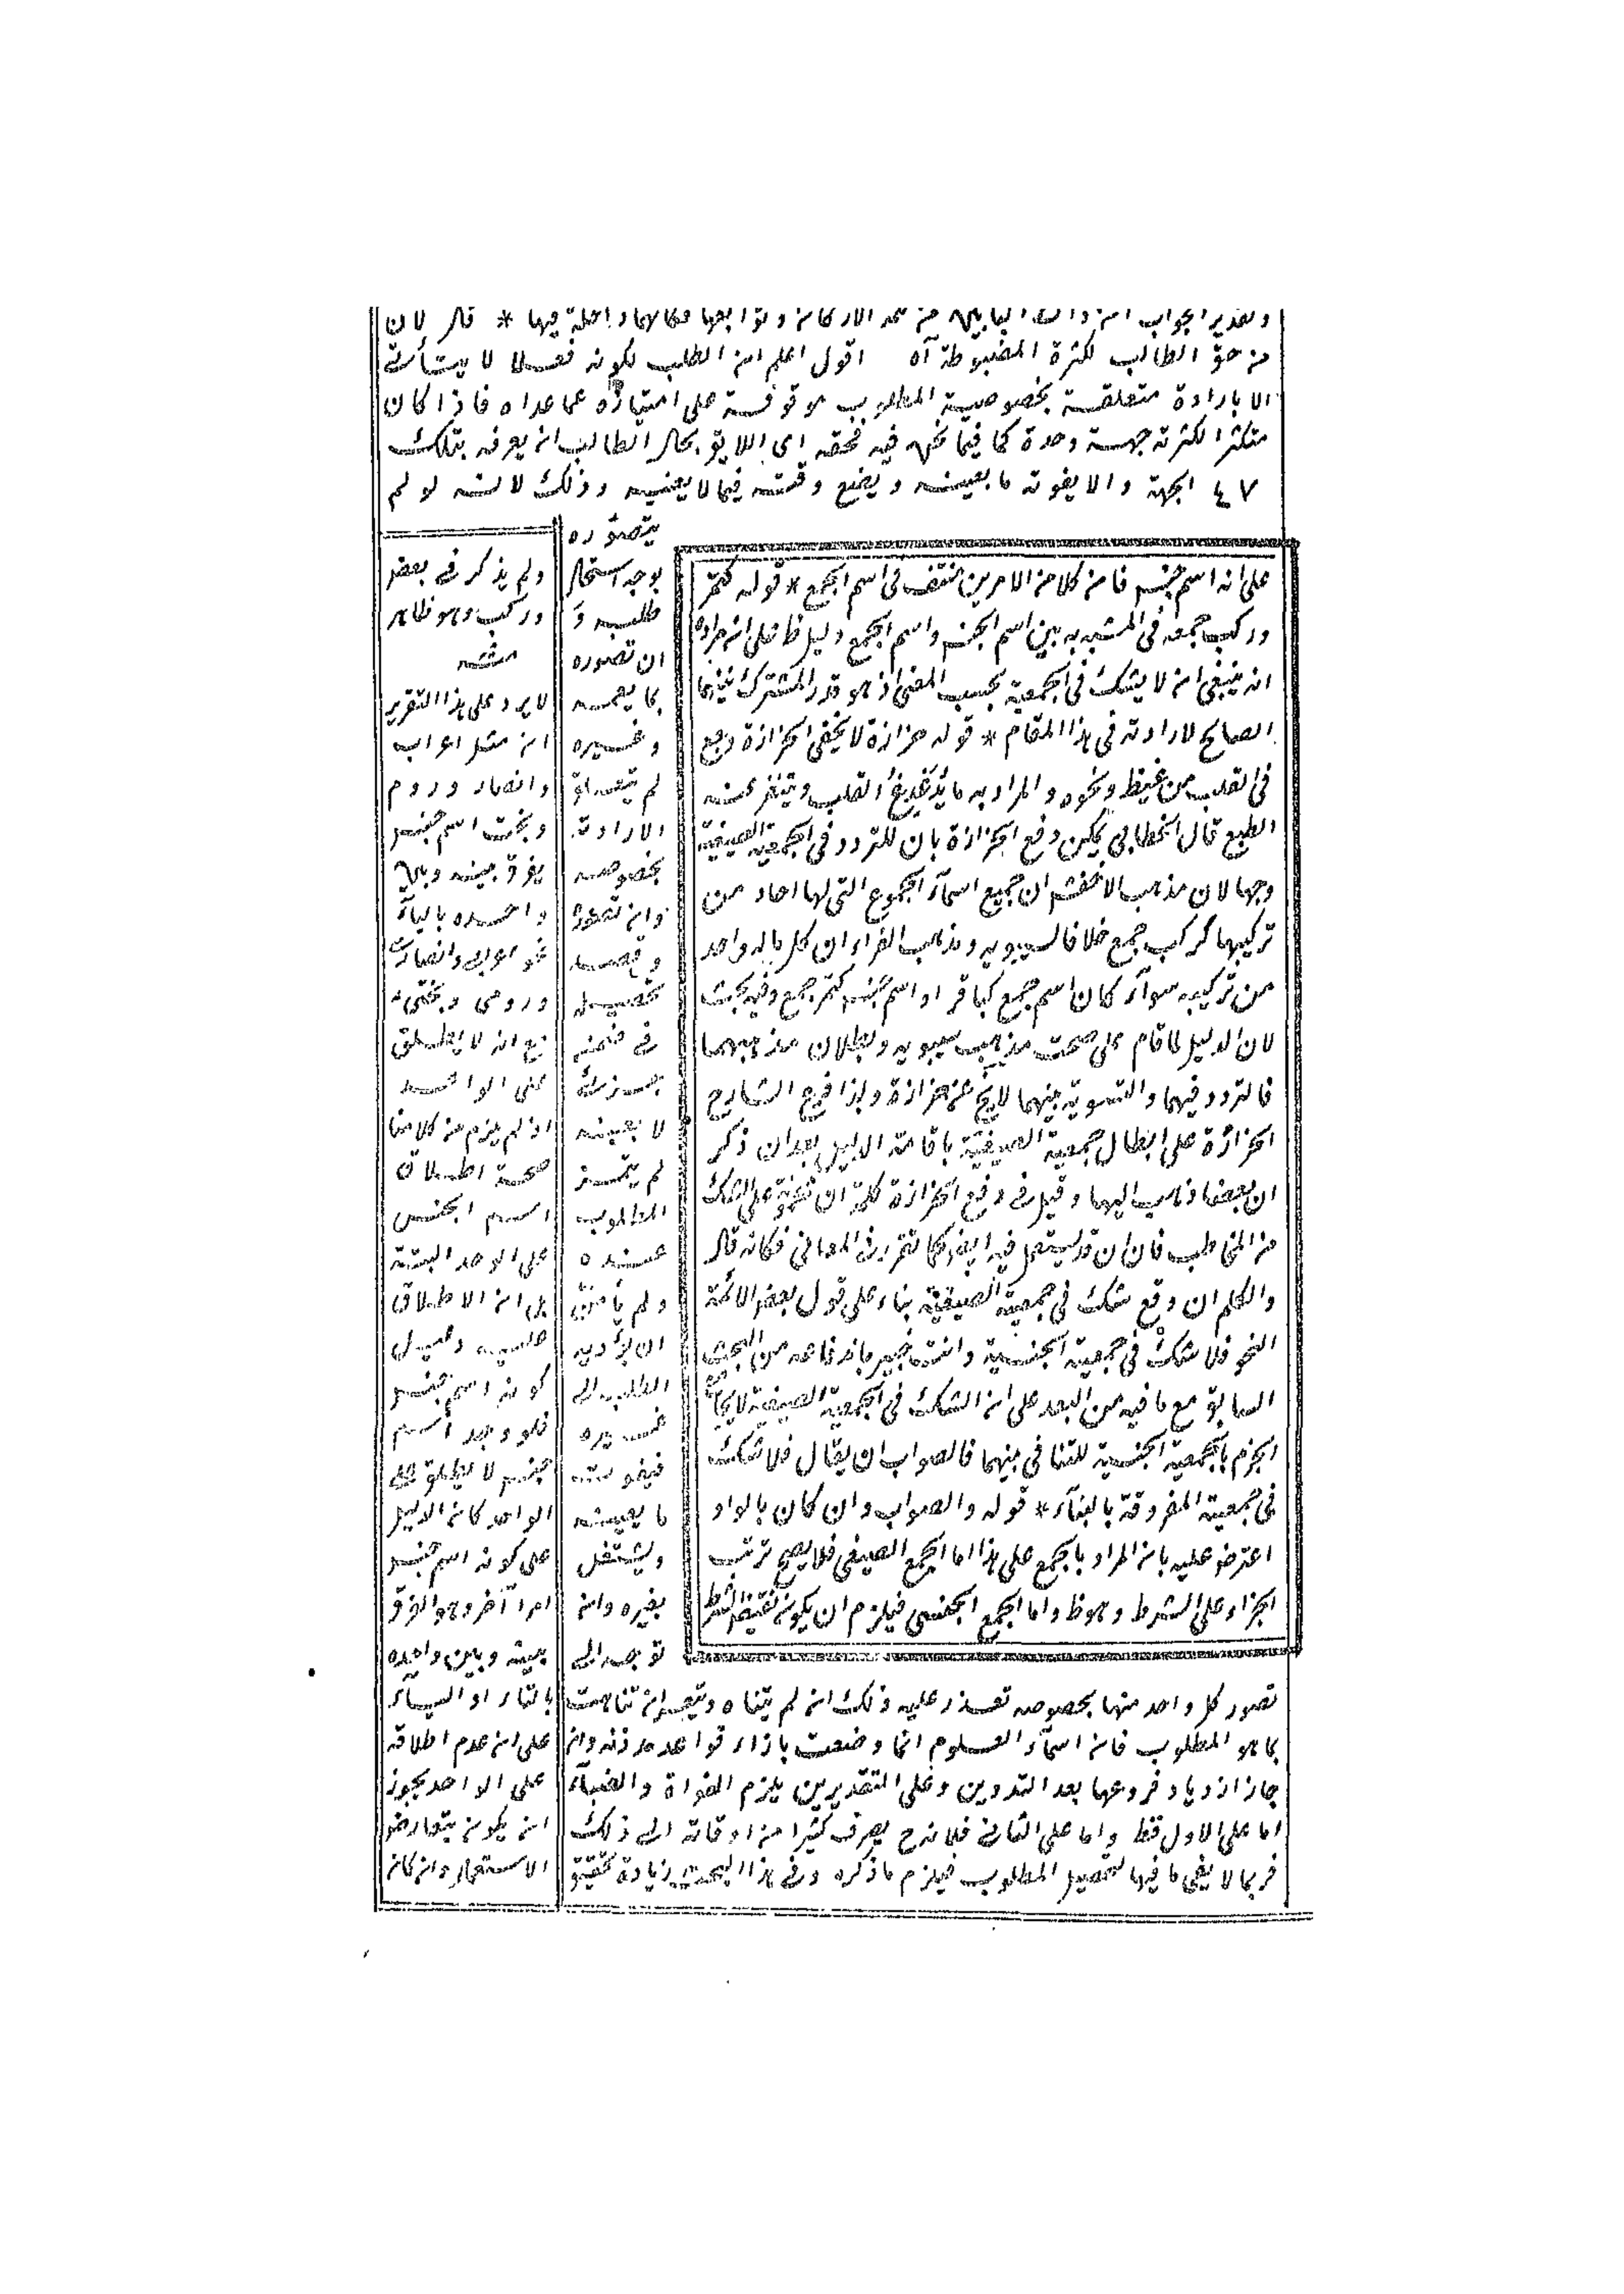 وتقدير الجواب ان ذات البابين من عمد الاركان وتوابعها فكانهما داخلة فيها * قال لان
من حق الطالب لكثرة المضبوطة آه اقول اعلم ان الطلب لكونه فعلا لا يتأتى
الا بارادة متعلقة بخصوصية المطلوب موقوفة على امتيازه عما عداه فاذا كان
متكثرا لكثرته جهة وحدة كما فيما نحن فيه فحقه اى اللايق بحال الطالب ان يعرفه بتلك
٤٧ الجهة والا يفوته ما يعينه ويضيع وقته فيما لا يعنيه وذلك لانه لو لم
يتصوره
بوجه استحال
طلبه و
ان تصوره
بما يعمه
وغيره
لم يتعلق
الارادة
بخصوصه
وان تصور
وقصد
تحصيل
في ضمنه
جزئى
لا بعينه
لم يتميز
المطلوب
عنده
ولم يأمن
ان يؤديه
الطلب الى
غيره
فيفوته
ما يعينه
ويشتغل
بغيره وان
توجه الى
تصور كل واحد منها بخصوصه تعذر عليه ذلك ان لم يتناه وتعسر ان تناهت
كما هو المطلوب فان اسمآء العلوم انما وضعت بازاء قواعد وان
جاز ازدياد فروعها بعد التدوين وعلى التقديرين يلزم الفوات والضياع
اما على الاول فقط واما على الثانى فلانه ح يصرف كثيرا من اوقاته الى ذلك
فربما لا يفى ما فيها لتحصيل المطلوب فيلزم ما ذكره وفى هذا البحث زيادة تحقيق
على انه اسم جنس فان كلا من الامرين منتف فى اسم الجمع * قوله كتمر
وركب جمعه فى المشبه به بين اسم الجنس واسم الجمع دليل ظ على ان مراده
انه ينبغى ان لا يشك فى الجمعية بحسب المعنى اذ هو قدر المشترك بينهما
الصالح لارادته فى هذا المقام * قوله حزازة لا يخفى الحزازة وجع
فى القلب من غيظ ونحوه والمراد به ما يدغدغ القلب ويتنفر عنه
الطبع قال الخطابى يمكن دفع الحزازة بان للتردد فى الجمعية الصيغية
وجها لان مذهب الاخفش ان جميع اسمآء الجموع التى لها احاد من
تركيبها كركب جمع خلافا لسيبويه ومذهب الفراء ان كل ماله واحد
من تركيبه سوآء كان اسم جمع كباقر او اسم جنس كتمر جمع وفيه بحث
لان الدليل لما قام على صحة مذهب سيبويه وبطلان مذهبهما
فالتردد فيهما والتسوية بينهما لايخ عن حزازة ولذا فرع الشارح
الحزازة على ابطال جمعية الصيغية باقامة الدليل بعد ان ذكر
ان بعضا ذاهب اليهما وقيل فى دفع الحزازة كلمة ان على الشك
من المخاطب فان ان قد يستعمل فيه ايضا كما تقرر فى المعانى فكانه قال
والكلم ان وقع شك فى جمعية الصيغية بناء على قول بعض الائمة
النحو فلا شك فى جمعية الجنسية وانت خبير باندفاعه من البحث
السابق مع ما فيه من البعد على ان الشك فى الجمعية الصيغية لا يجامع
الجزم بالجمعية الجنسية للتنافى بينهما فالصواب ان يقال فلا شك
فى جمعية المفروقة بالفاء * قوله والصواب وان كان بالواو
اعترض عليه بان المراد بالجمع على هذا اما الجمع الصيغى فلا يصح ترتب
الجزاء على الشرط وهو ظ واما الجمع الجنسى فيلزم ان يكون نقيض الشرط
ولم يذكر فى بعض
وركب وهو ظاهر
منه
لا يرد على هذا التقرير
ان مثل اعراب
وانصار وروم
وبخت اسم جنس
يفرق بينه وبين
واحده بالياء
نحو اعرابى وانصارى
ورومى وبختى
مع انه لا يطلق
على الواحد
اذ لم يلزم من كلامنا
صحة اطلاق
اسم الجنس
على الاحد البتة
بل ان الاطلاق
عليه دليل
كونه اسم جنس
فلو وجد اسم
جنس لا يطلق على
الواحد كان الدليل
على كونه اسم جنس
امرا آخر وهو الفرق
بينه وبين واحده
بالتاء او الياء
على ان عدم اطلاقه
على الواحد يجوز
ان يكون بتعارض
الاستعمال وان كان